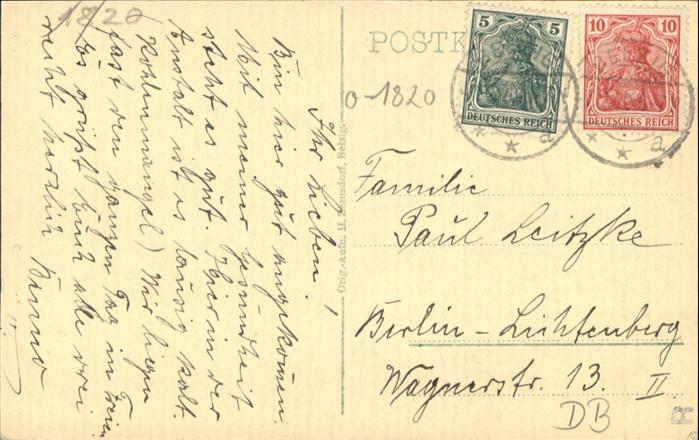 1820
Ihr Lieben!
Bin hier gut angekommen.
Mit meiner Gesundheit
steht es gut. Hier in der
Anstalt ist es lausig kalt
Kohlenmangel) Wir liegen
fast den ganzen Tag in Freien
Es grüßt Euch alle drei
recht herzlich Benno
Orig.-Aufn. H. Bornsdorf, Belzig.
POSTK
0-1820
5
DEUTSCHES REICH
10 10
DEUTSCHES REICH
a
a
Familie
Paul Leitzke
Berlin-Lichtenberg
Wagnerstr. 13. II
DB